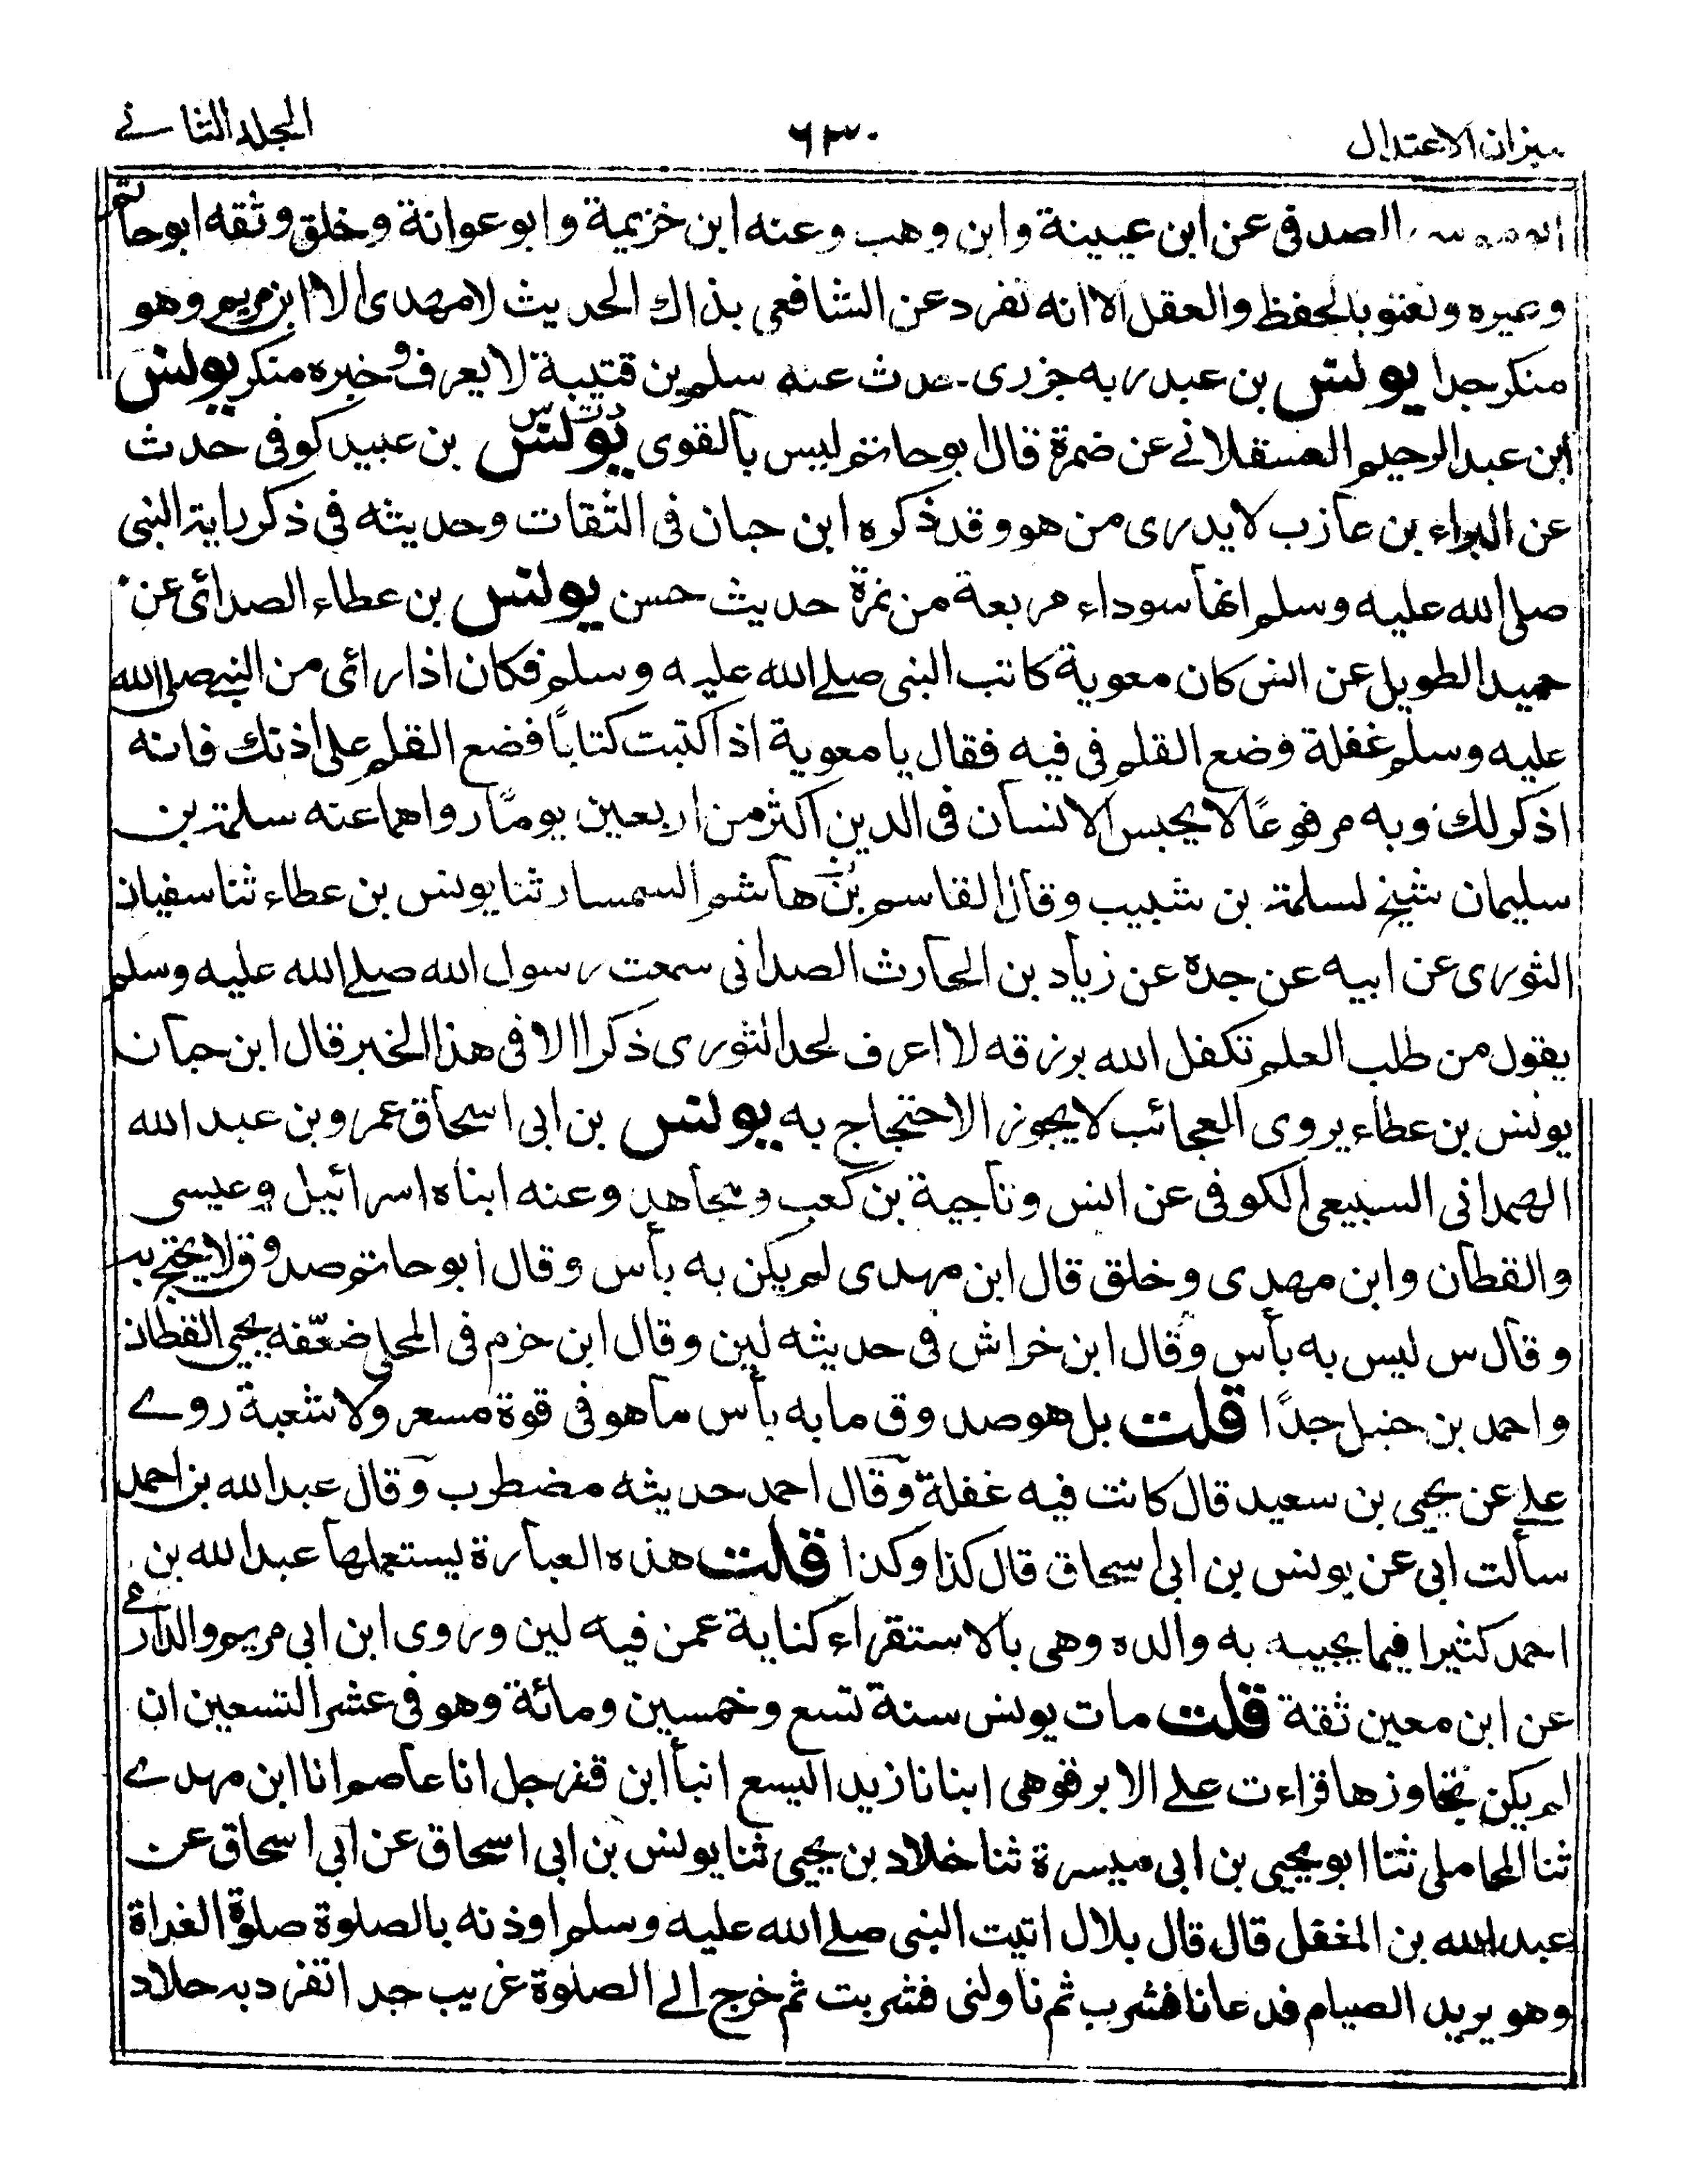 ميزان الاعتدال
٦٣٠
المجلد الثانے
الصدفى عن ابن عيينة وابن وهب وعنه ابن خزيمة وابو عوانة وخلق وثقه ابوحاتم
وغيره ونعتو بالحفظ والعقل الا انه تفرد عن الشافعي بذاك الحديث لا مهدى الا ابن مريم وهو
منكر جدا يونس بن عبد ربه جزرى حدث عنه سلم بن قتيبة لا يعرف وخبره منكر يونس
ابن عبد الرحيم العسقلانے عن ضمرة قال ابوحاتم ليس بالقوى يونس د ت س بن عبيد كوفى حدث
عن البراء بن عازب لا يدرى من هو وقد ذكره ابن حبان فى الثقات وحديثه فى ذكر راية النبى
صلى الله عليه وسلم انها سوداء مربعة من نمرة حديث حسن يونس بن عطاء الصدائى عن
حميد الطويل عن انس كان معوية كاتب النبى صلے الله عليه وسلم فكان اذا رأى من النبى صلى الله
عليه وسلم غفلة وضع القلم فى فيه فقال يا معوية اذا كتبت كتاباً فضع القلم على اذنك فانه
اذكر لك وبه مرفوعاً لا يحبس الانسان فى الدين اكثر من اربعين يوماً رواهما عنه سلمة بن
سليمان شيخ لسلمة بن شبيب وقال القاسم بن هاشم السمسار ثنا يونس بن عطاء ثنا سفيان
الثورى عن ابيه عن جده عن زياد بن الحارث الصدائى سمعت رسول الله صلے الله عليه وسلم
يقول من طلب العلم تكفل الله برزقه لا اعرف لجد الثورى ذكرا الا فى هذا الخبر قال ابن حبان
يونس بن عطاء يروى العجائب لا يجوز الاحتجاج به يونس بن ابى اسحاق عمرو بن عبد الله
الهمدانى السبيعى الكوفى عن انس وناجية بن كعب ومجاهد وعنه ابناه اسرائيل وعيسى
والقطان وابن مهدى وخلق قال ابن مهدى لم يكن به بأس وقال ابوحاتم صدوق لا يحتج به
وقال س ليس به بأس وقال ابن خراش فى حديثه لين وقال ابن حزم فى المحلى ضعّفه يحيى القطان
واحمد بن حنبل جدًا قلت بل هو صدوق ما به بأس ما هو فى قوة مسعر ولا شعبة روے
علے عن يحيى بن سعيد قال كانت فيه غفلة وقال احمد حديثه مضطرب وقال عبد الله بن احمد
سألت ابى عن يونس بن ابى اسحاق قال كذا وكذا قلت هذه العبارة يستعملها عبد الله بن
احمد كثيرا فيما يجيبه به والده وهى بالاستقراء كناية عمن فيه لين وروى ابن ابى مريم والدارمے
عن ابن معين ثقة قلت مات يونس سنة تسع وخمسين ومائة وهو فى عشر التسعين ان
لم يكن تجاوزها قراءت علے الابرقوهى ابنانا زيد اليسع انبأ ابن قفرجل انا عاصم انا ابن مهدے
ثنا المحاملى ثنا ابو يحيى بن ابى ميسرة ثنا خلاد بن يحيى ثنا يونس بن ابى اسحاق عن ابى اسحاق عن
عبد الله بن المغفل قال قال بلال اتيت النبى صلے الله عليه وسلم اوذنه بالصلوة صلوة الغداة
وهو يريد الصيام فدعانا فشرب ثم ناولنى فشربت ثم خرج الے الصلوة غريب جدا تفرد به خلاد